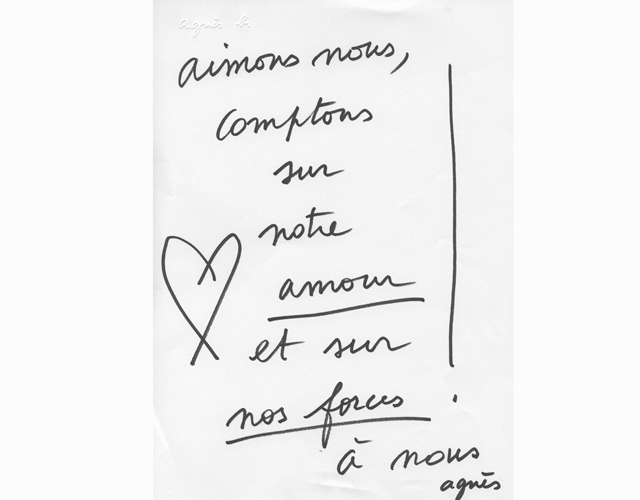 agnès b.
aimons nous,
comptons
sur
notre
amour
et sur
nos forces !
à nous
agnès